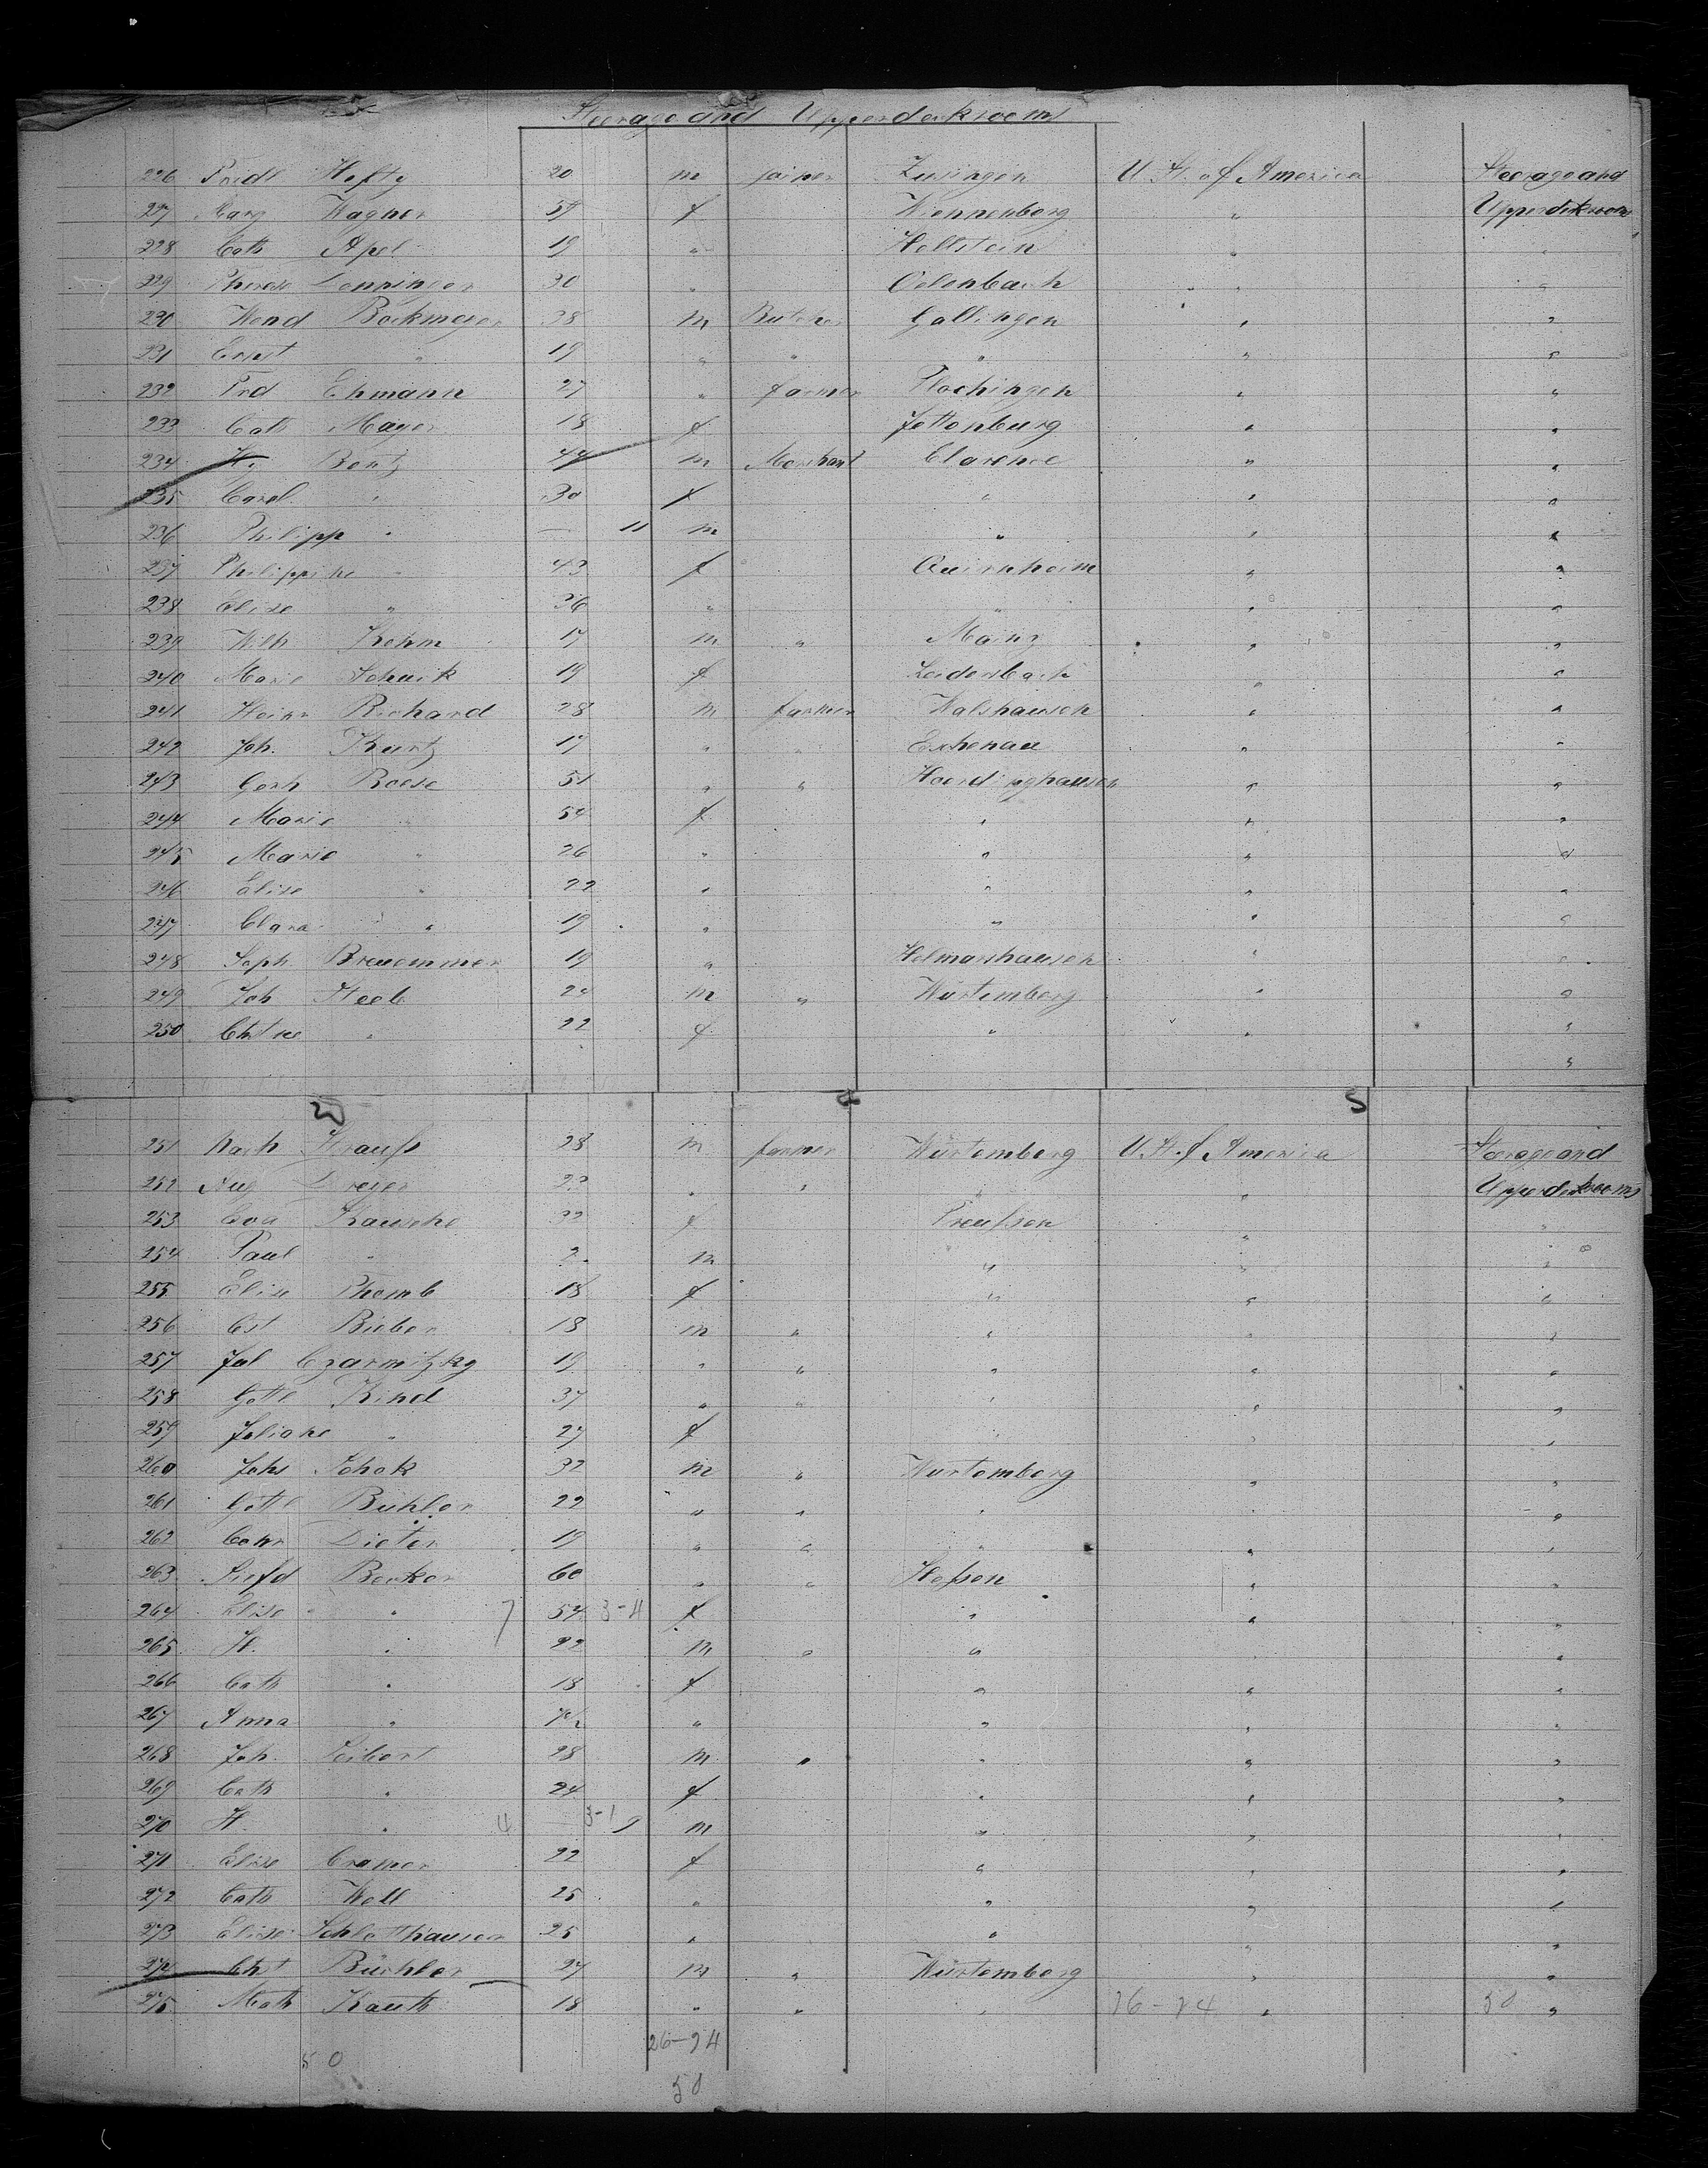 Steerage and Upperdeckrooms
226 Fridl Hefty 20 m joiner Zusingen U. St. of America Steerage and
227 Marg Wagner 59 f Wiennenberg " Upperdeckrooms
228 Cath Apel 19 " Hollstein " "
229 Therese 30 " Odenbach " "
230 Wend Bockmeyer 38 m Butcher Gattingen " "
231 Ernst " 19 " " " " "
232 Frd Ehmann 27 " farmer Plochingen " "
233 Cath Mayer 18 f Jettenburg " "
234 Hy Bentz 44 m Merchant Clarence " "
235 Carol " 30 f " " "
236 Philipp " — 11 m " " "
237 Philippine " 43 f Quirnheim " "
238 Elise " 36 " " " "
239 Wilh Kehm 17 m " Mainz " "
240 Marie Schuik 19 f Lederbach " "
241 Heinr Richard 28 m farmer Walshausen " "
242 Joh. Kurtz 17 " " Eschenau " "
243 Gerh Boese 51 " " Hoerdinghausen " "
244 Marie " 54 f " " "
245 Marie " 26 " " " "
246 Elise " 22 " " " "
247 Clara " 19 " " " "
248 Soph Breuemmer 19 " Helmarshausen " "
249 Joh Steeb 24 m " Würtemberg " "
250 Chtne " 22 f " " "
"
251 Math Krauß 28 m farmer Würtemberg U. St. of America Steerage and
252 Aug Dreyer 23 " " " " Upperdeckrooms
253 Eva Kausche 32 f Preußen " "
254 Paul " 2 m " " "
255 Elise Themb 18 f " " "
256 Cst Bieber 18 m " " " "
257 Jul Czarnitzky 19 " " " " "
258 Gottl Kind 37 " " " " "
259 Juliane " 27 f " " "
260 Johs Schok 32 m " Würtemberg " "
261 Gottl Bühler 22 " " " " "
262 Conr Dieter 19 " " " " "
263 Siefd Becker 60 " " Heßen " "
264 Elise " 7 54 3-4 f " " "
265 H. " 22 m " " " "
266 Cath " 18 f " " "
267 Anna " " " " "
268 Joh. Seibert 28 m " " " "
269 Cath " 24 f " " "
270 H. " 4 — 3-1 m " " "
271 Elise Cramer 22 f " " "
272 Cath Well 25 " " " "
273 Elise Schlotthauer 25 " " " "
274 Chst Büchler 27 m " Würtemberg " "
275 Math Kauth 18 " " " 26-24 " 50 "
26-24
50
50